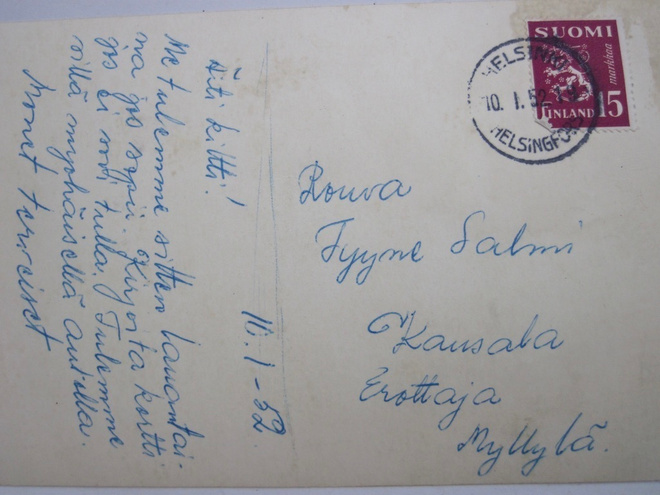 10.1-52.
Äiti kiltti!
Me tulemme sitten lauantai-
na jos sopii. Kirjoita kortti
jos ei voi tulla. Tulemme
sillä myöhäisellä autolla.
Monet terveiset
SUOMI
markkaa
FINLAND 15
HELSINKI
10. 1. 52
HELSINGFORS
Rouva
Tyyne Salmi
Kausala
Erottaja
Myllylä.